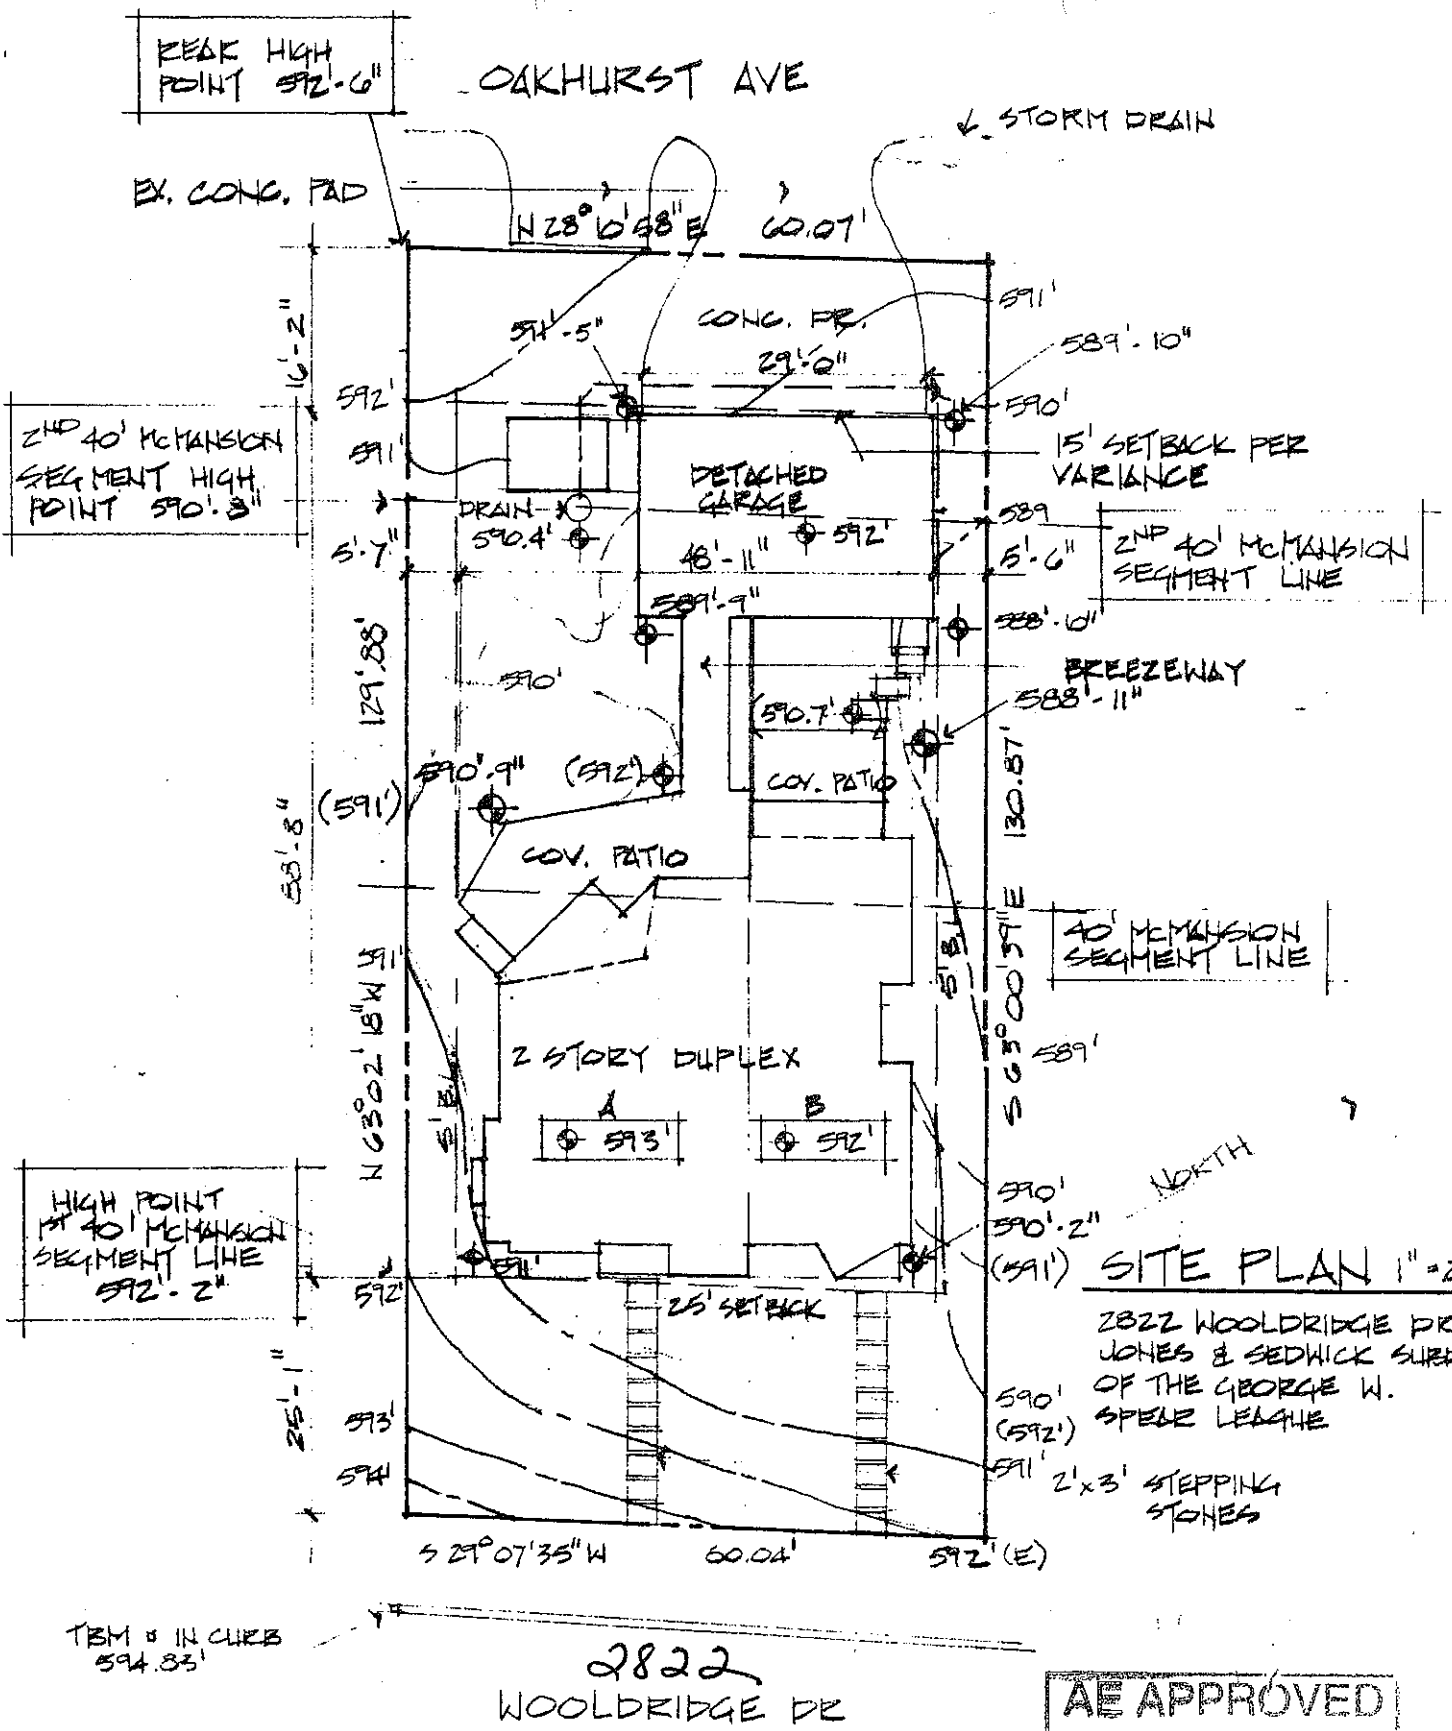 REAR HIGH
POINT 592'-6"
OAKHURST AVE
STORM DRAIN
EX. CONC. PAD
N 28° 10' 58" E 60.07'
16'-2"
591'-5"
CONC. DR.
29'-0"
591'
589'-10"
592'
590'
2ND 40' McMANSION
SEGMENT HIGH
POINT 590'-3"
591'
DETACHED
GARAGE
15' SETBACK PER
VARIANCE
DRAIN
590.4'
592'
589
5'-7"
48'-11"
5'-6"
2ND 40' McMANSION
SEGMENT LINE
589'-9"
588'-10"
129.88'
590'
BREEZEWAY
(590.7')
588'-11"
590'-9"
(592')
(591')
COV. PATIO
130.87'
88'-8"
COV. PATIO
40' McMANSION
SEGMENT LINE
5' B.L.
591'
N 63° 02' 18" W
S 63° 00' 39" E
2 STORY DUPLEX
589'
5' B.L.
A
B
593'
592'
NORTH
HIGH POINT
1ST 40' McMANSION
SEGMENT LINE
592'-2"
590'
590'-2"
591'
(591')
SITE PLAN 1"=2
592'
25' SETBACK
2822 WOOLDRIDGE DR
JONES & SEDWICK
OF THE GEORGE W.
SPEAR LEAGUE
25'-1"
590'
(592')
593'
594'
591'
2'x3' STEPPING
STONES
S 29° 07' 35" W 60.04'
592' (E)
TBM IN CURB
594.83'
2822
WOOLDRIDGE DR
AE APPROVED